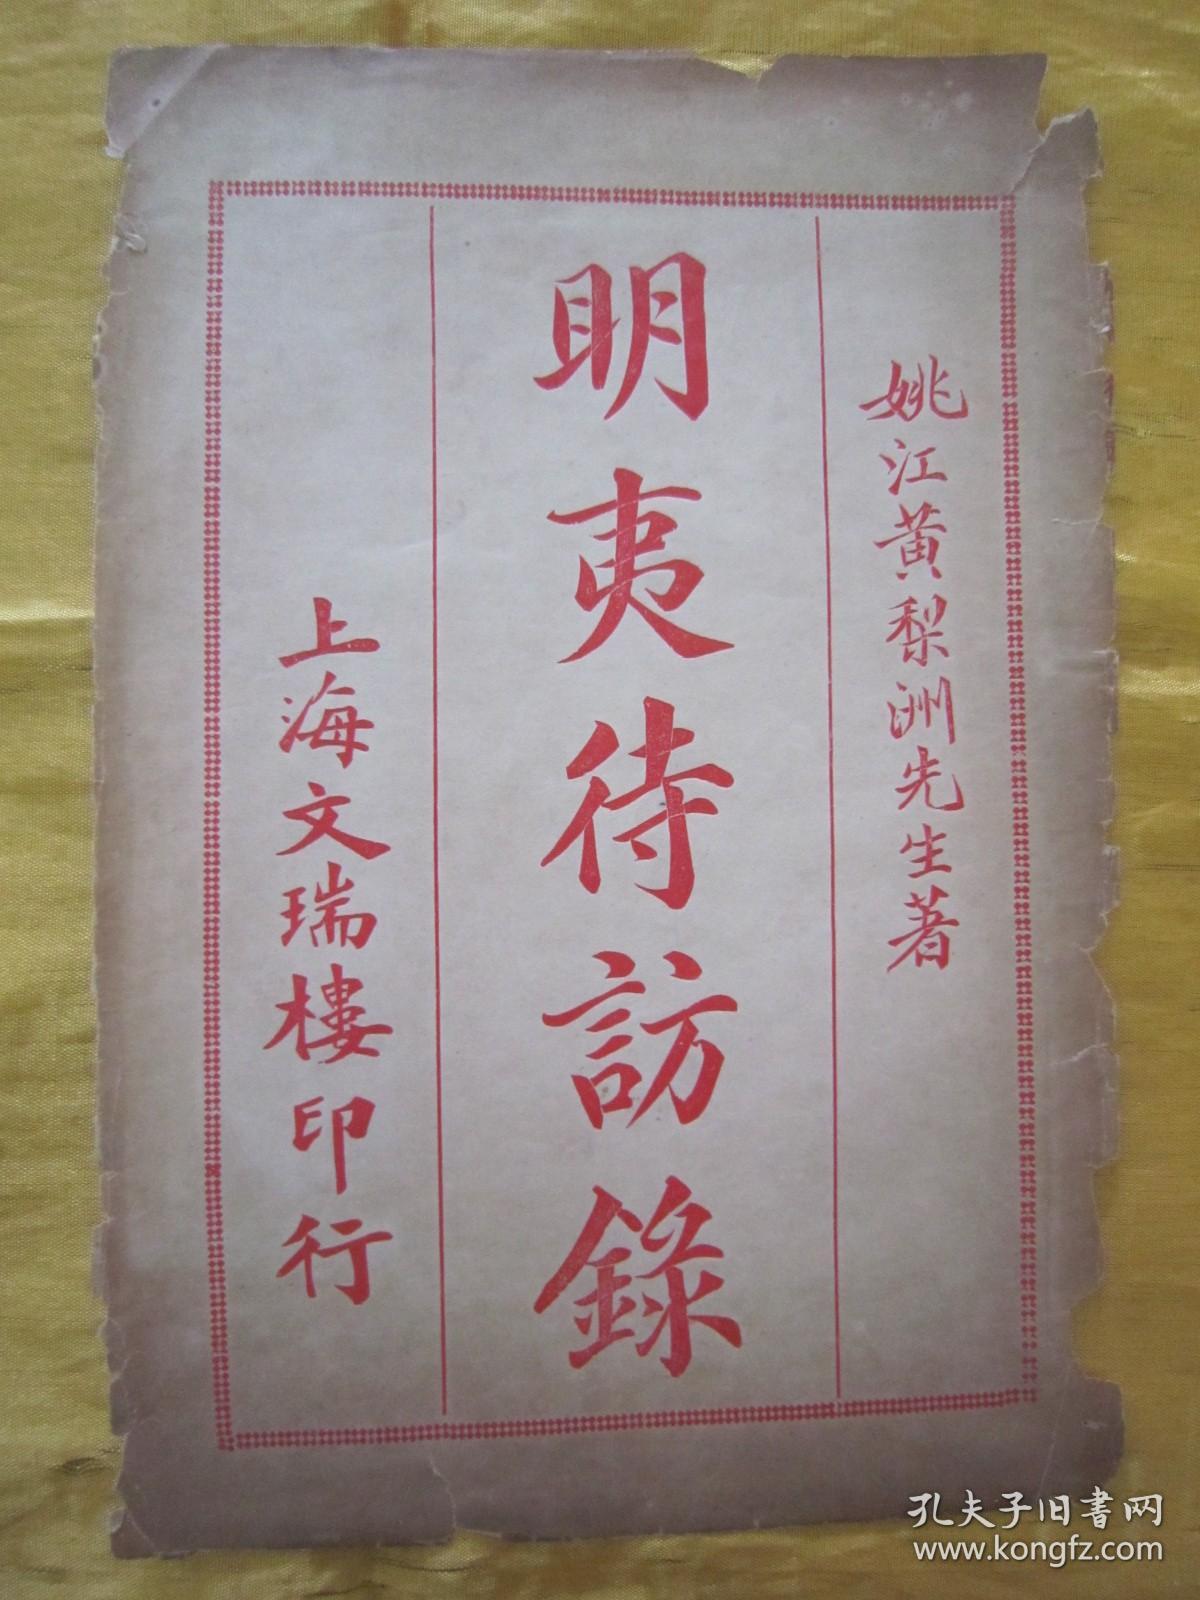 姚江黄梨洲先生著
明夷待訪錄
上海文瑞樓印行
孔夫子旧书网
www.kongfz.com